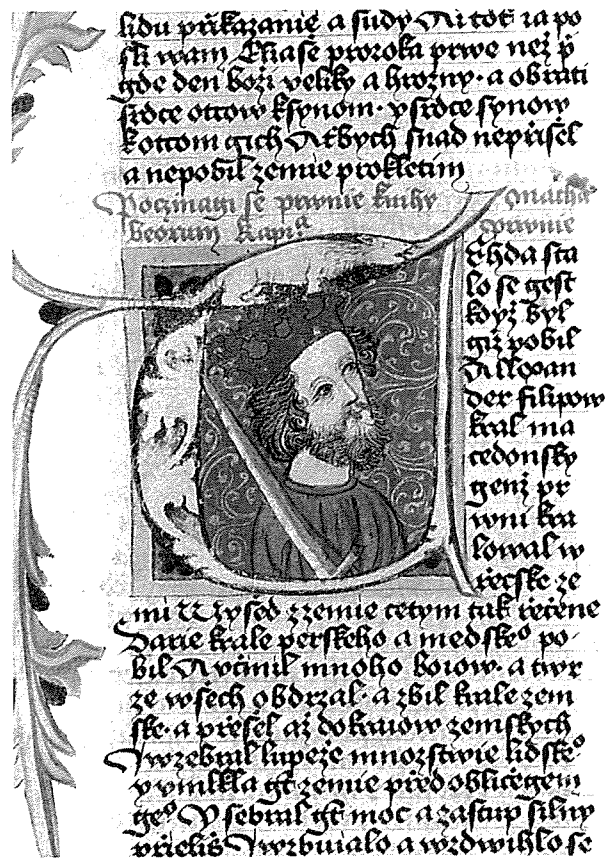 lidu přikazanie a sudy Ai tot ia po
sli wam Eliasě proroka prwe než př
gde den boží veliky a hrozny · a obrati
srdce otcow k synom · y srdce synow
k otcom gich At bych snad nepřisěl
a nepobil zemie prokletim
Poczinagi se prwnie knihy Macha
beorum Kapıᵃ prwnie
Ehda sta
lo se gest
když byl
giž pobil
Allexan
der filipow
kral ma
cedonsky
genž pr
wni kra
lowal w
řecske ze
mi Wysed z zemie cetym tak řečene
Darie krale perskeho a medskeᵒ po-
bil A včinil mnoho boiow · a twr
ze wsěch obdrzal · a zbil krale zem
ske · a přesel až do kraiow zemskych
J wzebral lupeže mnozstwie lidskeᵒ
y vmlkla gt zemie před obličegem
geᵒ Y sebral gt moc a zastup silny
přieliš J wzbuialo a wzdwihlo se